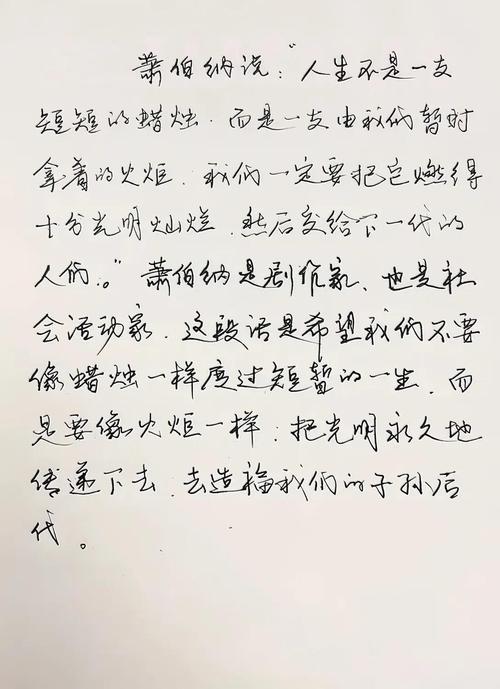 萧伯纳说："人生不是一支
短短的蜡烛.而是一支由我们暂时
拿着的火炬.我们一定要把它燃得
十分光明灿烂.然后交给下一代的
人们。"萧伯纳是剧作家、也是社
会活动家.这段话是希望我们不要
像蜡烛一样度过短暂的一生.而
是要像火炬一样:把光明永久地
传递下去.去造福我们的子孙后
代。